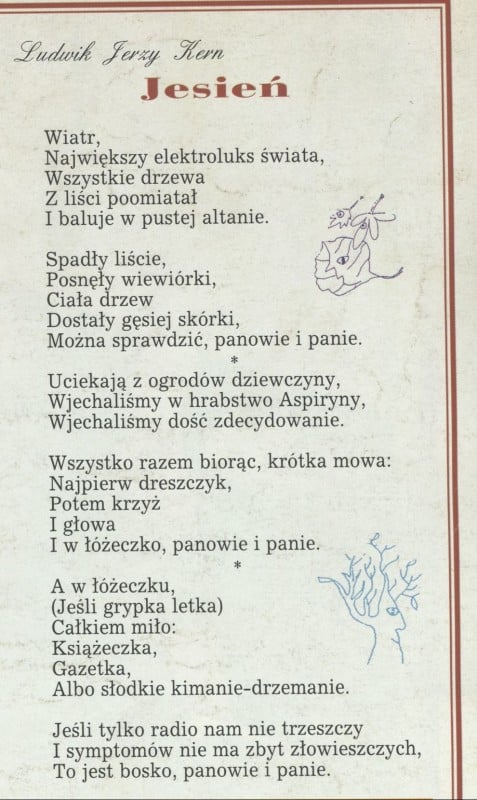 Ludwik Jerzy Kern
Jesień
Wiatr,
Największy elektroluks świata,
Wszystkie drzewa
Z liści poomiatał
I baluje w pustej altanie.
Spadły liście,
Posnęły wiewiórki,
Ciała drzew
Dostały gęsiej skórki,
Można sprawdzić, panowie i panie.
*
Uciekają z ogrodów dziewczyny,
Wjechaliśmy w hrabstwo Aspiryny,
Wjechaliśmy dość zdecydowanie.
Wszystko razem biorąc, krótka mowa:
Najpierw dreszczyk,
Potem krzyż
I głowa
I w łóżeczko, panowie i panie.
*
A w łóżeczku,
(Jeśli grypka letka)
Całkiem miło:
Książeczka,
Gazetka,
Albo słodkie kimanie-drzemanie.
Jeśli tylko radio nam nie trzeszczy
I symptomów nie ma zbyt złowieszczych,
To jest bosko, panowie i panie.